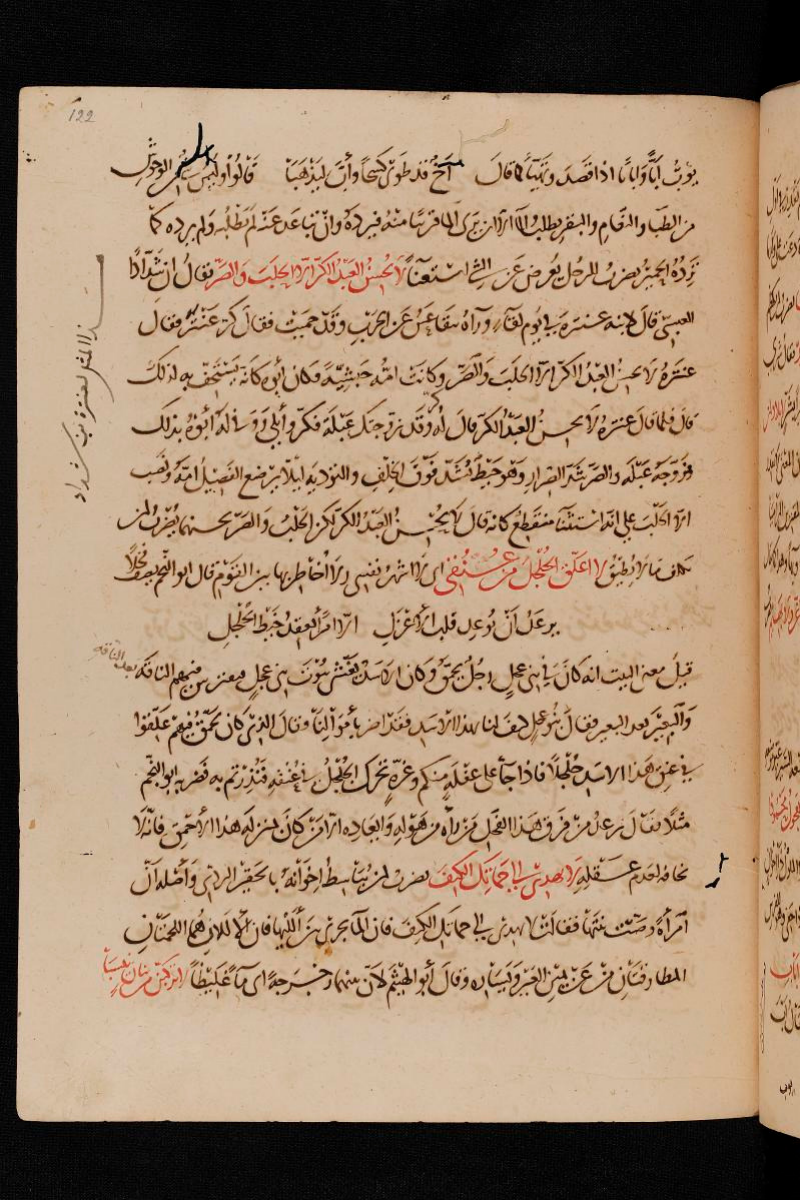 122
يؤبّ أبًّا وأبابًا اذا قصد وتهيّأ كما قال أخ قد طوى كشحًا وأبّ ليذهبا قالوا وليس شيء من الوحش
من الظبا والنعام والبقر يطلب الماء الا ان يرى الماء قريبا منه فيرده وان تباعد عنه لم يطلبه ولم يرده كما
يرده الحمير يضرب للرجل يعرض عن الشيء استغناءً لا يحسن العبد الكرّ الا الحلب والصرّ يقال ان شدّادًا
العبسي قال لابنه عنترة في يوم لقاء ورآه يتقاعس عن الحرب وقد حميت فقال كرّ عنتر فقال
عنترة لا يحسن العبد الكرّ الا الحلب والصرّ وكانت امّه حبشيّة فكان أبوه كانه يستخفّ به لذلك
قال فلما قال عنترة لا يحسن العبد الكرّ قال له كرّ وقد زوجتك عبلة فكرّ وأبلى ووفى له أبوه بذلك
فزوّجه عبلة والصرّ شدّ الصرار وهو خيط تشدّ فوق الخلف والتودية لئلا يرضع الفصيل امّه ونصب
الا الحلب على انه استثناء منقطع كانه قال لا يحسن العبد الكرّ لكن الحلب والصرّ يحسنهما يضرب لمن
يكلف ما لا يطيق لا اعلّق الجلجل من عنقي اى لا اشهر نفسي ولا أخاطر بها بين القوم قال ابو النجم يصف فحلًا
يرعد أن يوعد قلب الأعزل الا امرأ يعقد خيط الجلجل
قيل معنى البيت انه كان في بني عجل رجل يحمّق وكان الاسد يغشى بيوت بني عجل فيفترس منهم الناقة بعد الناقة
والبعير بعد البعير فقال بنو عجل كيف لنا بهذا الاسد فقد اضرّ باموالنا وقال الذى كان يحمّق فيهم علّقوا
في عنق هذا الاسد جلجلًا فاذا جاء على غفلة منكم وغرّة تحرّك الجلجل في عنقه فنذرتم به فضربه ابو النجم
مثلا فقال يرعد من فرق هذا الفحل من رآه من هوله وابعاده الا من كان بمنزلة هذا الأحمق فانه لا
يخافه لعدم عقله لا يهدى الى حماتك الكتف يضرب لمن يباسط اخوانه بالحقير الردىء وأصله أنّ
امرأة وصّت بنتها فقالت لا يهدى الى حماتك الكتف فان الماء يجرى بين ألليها فان الأللان هما اللحمتان
المطارقتان من عن يمين العير ويساره وقال أبو الهيثم لأن بينهما رخرجة اى ماء غليظا لا تركبن من بان نعيبا
هذا المثل لعنترة بن شداد